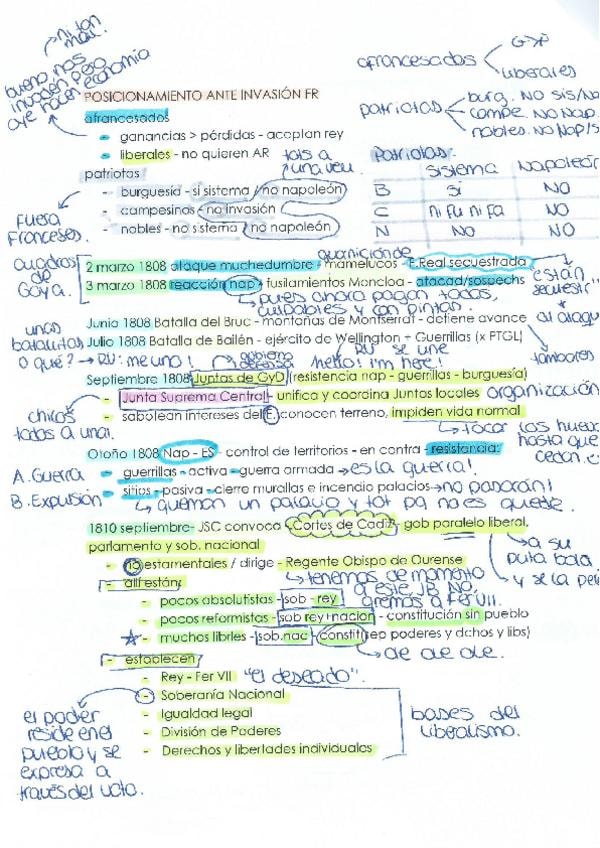 ni tan mal.
bueno, nos invaden pero oye hacen economía
afrancesados
G>P
liberales
POSICIONAMIENTO ANTE INVASIÓN FR
afrancesados
- ganancias > pérdidas - aceptan rey
- liberales - no quieren AR
tots a una veu.
patriotas
- burguesía - si sistema / no napoleón
- campesinos - no invasión
- nobles - no sistema / no napoleón
Fuera Franceses.
patriotas
burg. NO sis/Na
campe. NO Nap.
nobles. NO Nap/s
Patriotas:
Sistema Napoleón
B Sí NO
C ni fu ni fa NO
N NO NO
cuadros de Goya.
guarnición de
2 marzo 1808 ataque muchedumbre - mamelucos - F.Real secuestrada
3 marzo 1808 reacción nap - fusilamientos Moncloa - atacad/sospechs
están secuestr
pues ahora pagan todos, culpables y con pintas.
Junio 1808 Batalla del Bruc - montañas de Montserrat - detiene avance
al ataque
tambores
unas batallitas o qué? → RU: me uno!
Julio 1808 Batalla de Bailén - ejército de Wellington + Guerrillas (x PTGL)
RU se une
hello! i'm here!
gobierno defensa
Septiembre 1808 Juntas de GyD (resistencia nap - guerrillas - burguesía)
- Junta Suprema Central - unifica y coordina Juntas locales
organización
- sabotean intereses del E, conocen terreno, impiden vida normal
chicos todos a una!
tocar los huevo hasta que cedan
Otoño 1808 Nap - ES - control de territorios - en contra - resistencia:
A. Guerra
- guerrillas - activa - guerra armada → es la guerra!
B. Expulsión
- sitios - pasiva - cierre murallas e incendio palacios → no pasarán!
queman un palacio y tot pa no es quede.
1810 septiembre- JSC convoca Cortes de Cadiz - gob paralelo liberal,
parlamento y sob. nacional
a su puta bola y se la pe
- no estamentales / dirige - Regente Obispo de Ourense
tenemos de momento a este JB. No. a Fer VII.
- allí están:
- pocos absolutistas - sob - rey
- pocos reformistas - sob rey+nacion - constitución sin pueblo
- muchos librles - sob.nac - constit(rep poderes y dchos y libs)
ole ole ole.
- establecen
- Rey - Fer VII "el deseado".
- Soberanía Nacional
- Igualdad legal
- División de Poderes
- Derechos y libertades individuales
bases del liberalismo.
el poder reside en el pueblo y se expresa a través del voto.